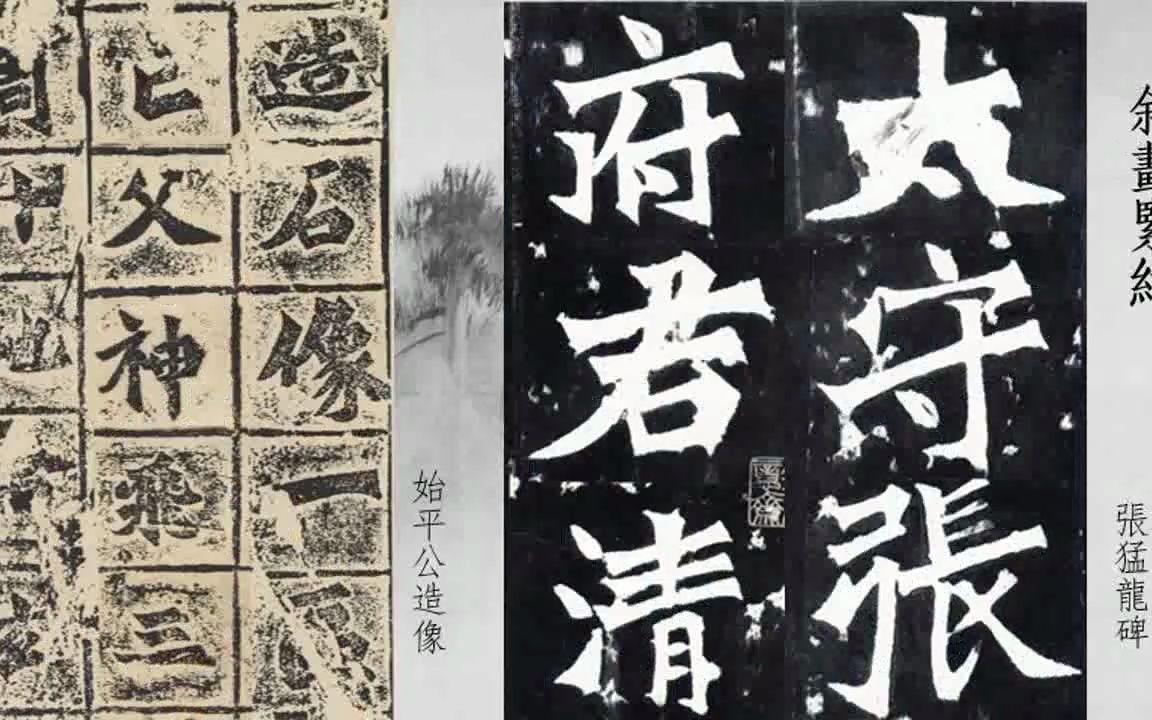 斜畫緊結
張猛龍碑
太守張
府君清
始平公造像
造石像一
亡父神飛三